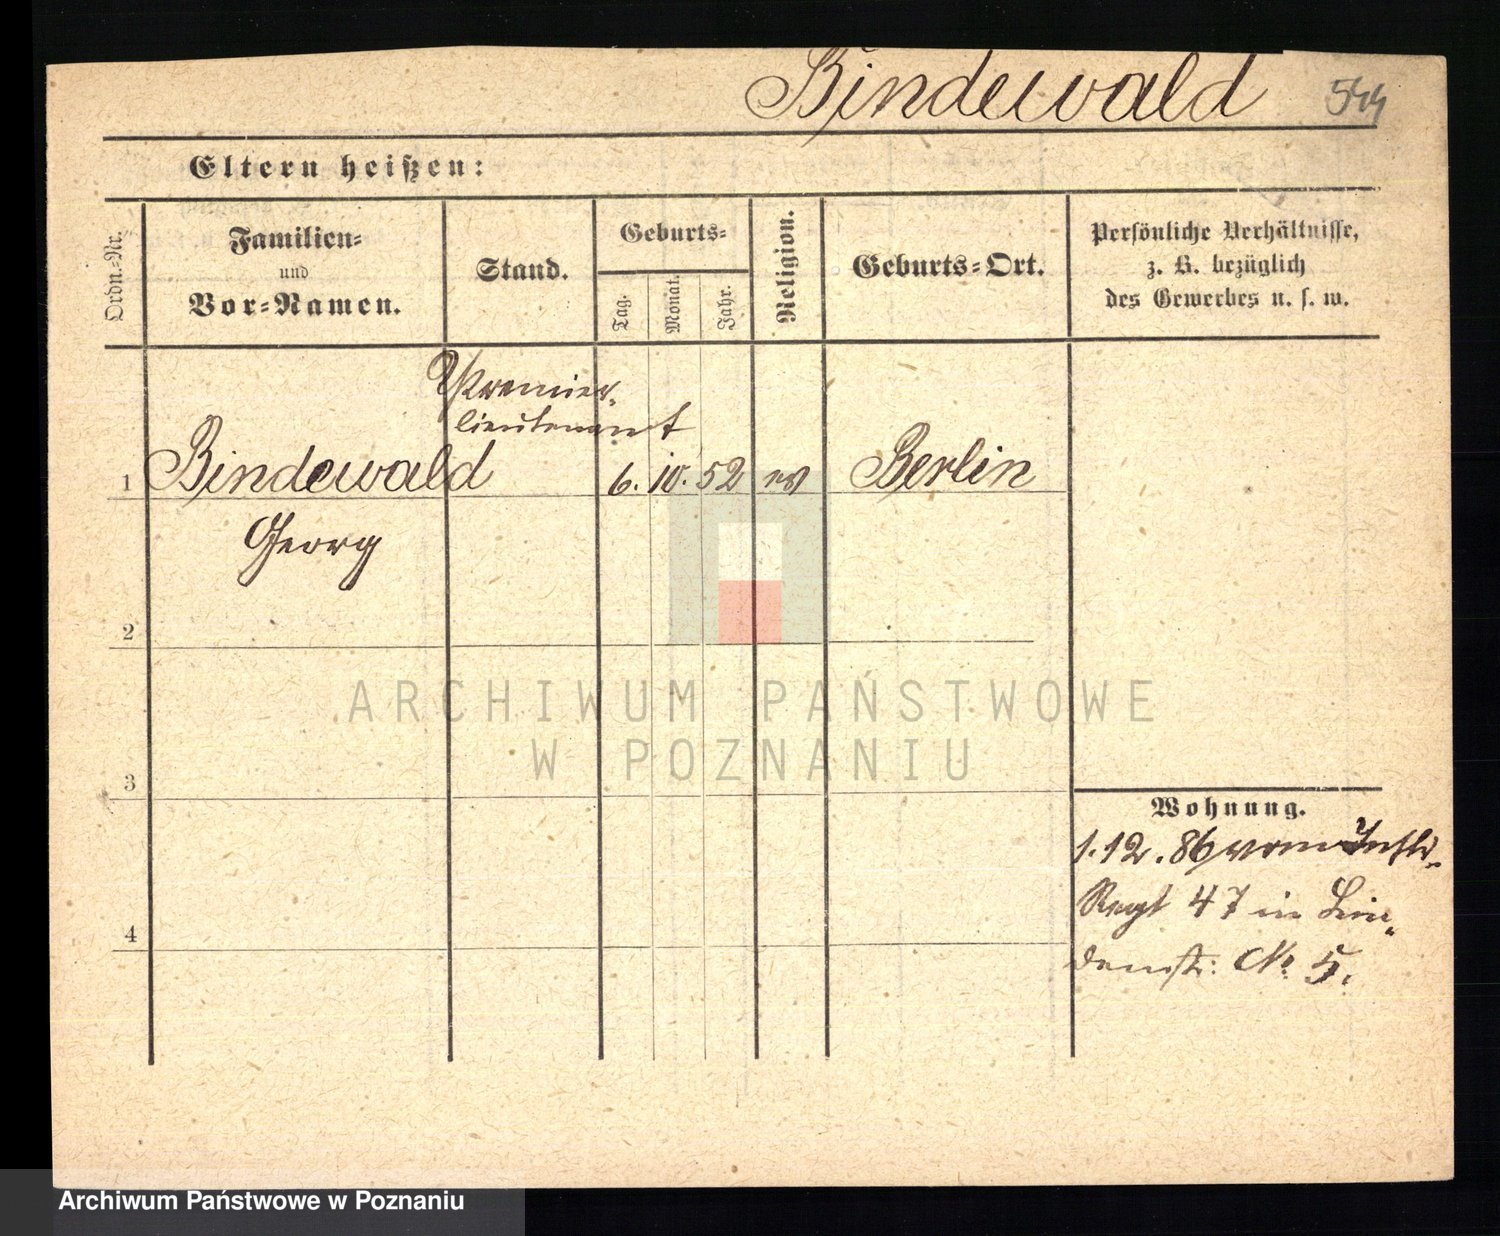 Bindewald 544
Eltern heißen:
Ordn.-Nr.
Familien-
und
Vor-Namen.
Stand.
Geburts-
Tag.
Monat.
Jahr.
Religion.
Geburts-Ort.
Persönliche Verhältnisse,
z. B. bezüglich
des Gewerbes u. s. w.
Premier-
lieutenant
1 Bindewald 6. 10. 52 ev Berlin
Georg
2
ARCHIWUM PAŃSTWOWE
W POZNANIU
3
4
Wohnung.
1.12.86 vom Inftr.
Regt 47 in Lin-
denstr: No 5.
Archiwum Państwowe w Poznaniu